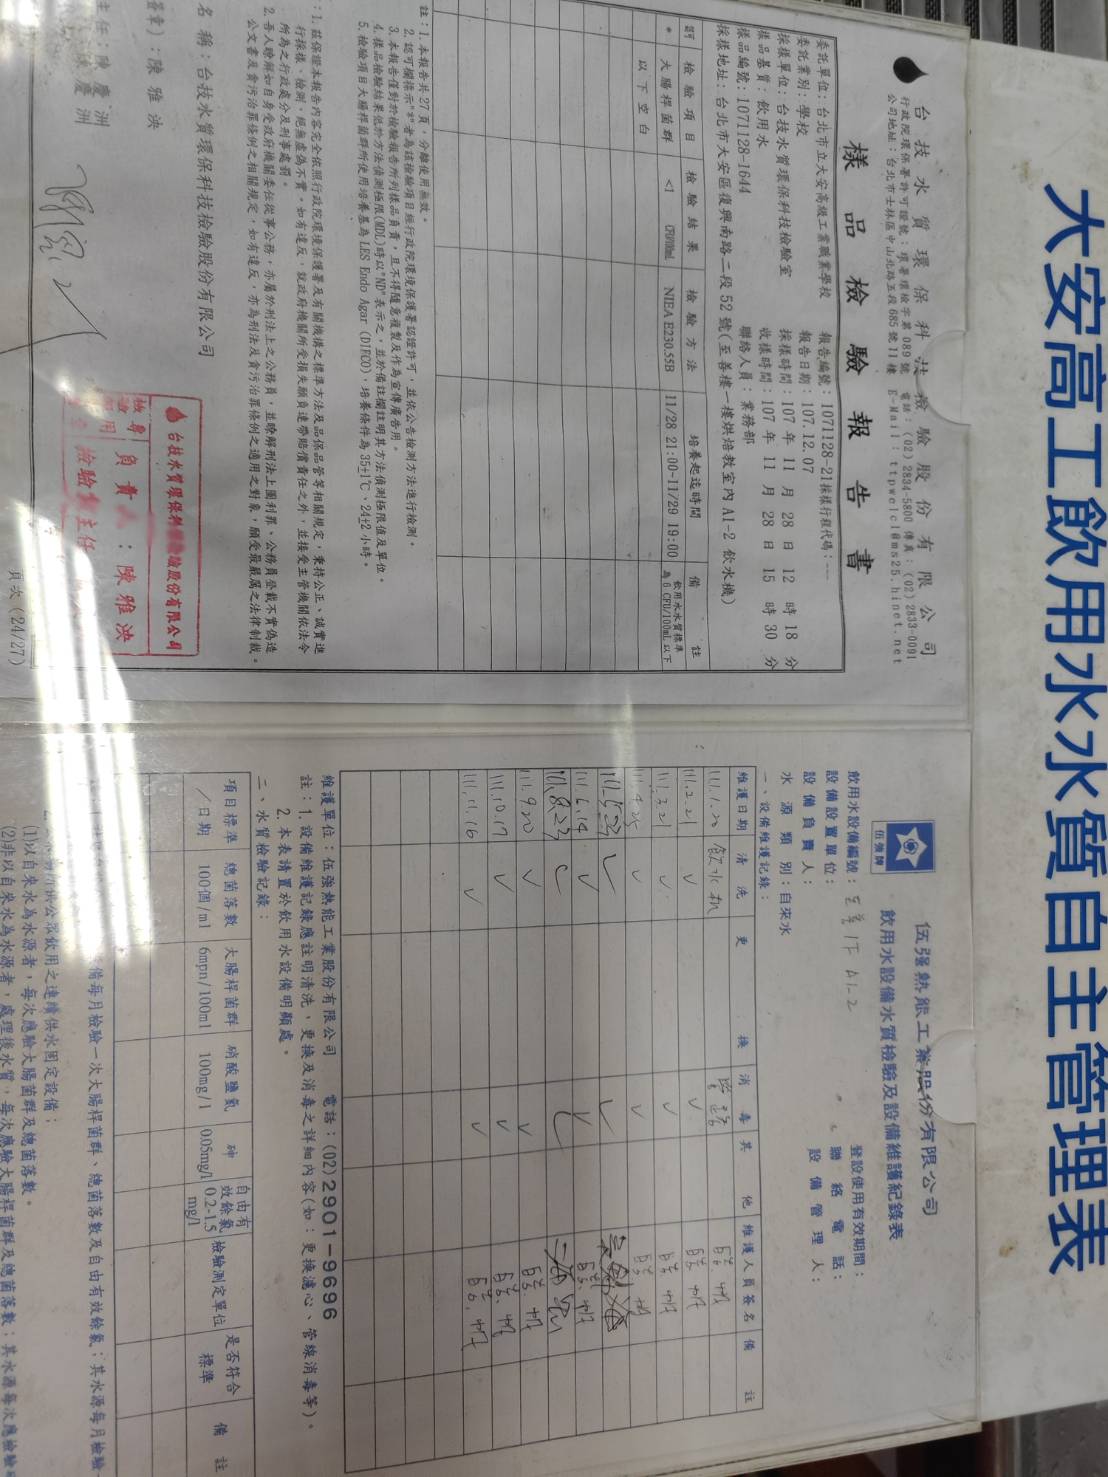 大安高工飲用水水質自主管理表
台技水質環保科技檢驗股份有限公司
行政院環保署許可證號：環署環檢字第089號 電話：(02) 2834-5800 傳真：(02) 2833-0091
公司地址：台北市士林區中山北路五段685號11樓 E-Mail：ttpwclcl@ms25.hinet.net
樣品檢驗報告書
委託單位：台北市立大安高級工業職業學校 報告編號：1071128-21採樣行程代碼：---
委託業別：學校 報告日期：107.12.07
採樣單位：台技水質環保科技檢驗室 採樣時間：107 年 11 月 28 日 12 時 18 分
樣品基質：飲用水 收樣時間：107 年 11 月 28 日 15 時 30 分
樣品編號：1071128-1644 聯絡人員：業務部
採樣地址：台北市大安區復興南路二段52號(至善樓一樓烘焙教室內 A1-2 飲水機)
註 檢驗項目 檢驗結果 檢驗方法 培養起迄時間 備註
* 大腸桿菌群 <1 CFU/100mL NIEA E230.55B 11/28 21:00-11/29 19:00 飲用水水質標準為6 CFU/100mL以下
以下空白
註：1.本報告共27頁，分離使用無效。
2.認可欄標示"*"者為該檢驗項目經行政院環境保護署認證許可，並依公告檢測方法進行檢測。
3.本報告僅對於檢驗報告所列樣品負責，且不得隨意複製及作為宣傳廣告用。
4.樣品檢驗結果低於方法偵測極限(MDL)時以"ND"表示之，並於備註欄註明其方法偵測極限值及單位。
5.檢驗項目大腸桿菌群所使用培養基為 LES Endo Agar (DIFCO)，培養條件為 35±1℃、24±2 小時。
：1.茲保證本報告內容完全依照行政院環境保護署及有關機構之標準方法及品保品管等相關規定，秉持公正、誠實進
行採樣、檢測，絕無虛偽不實。如有違反，就政府機關所受損失願負連帶賠償責任之外，並接受主管機關依法令
所為之行政處分及刑事處罰。
2.吾人瞭解如自身受政府機關委任從事公務，亦屬於刑法上之公務員，並瞭解刑法上圖利罪、公務員登載不實偽造
公文書及貪污治罪條例之相關規定，如有違反，亦為刑法及貪污治罪條例之適用之對象，願受最嚴厲之法律制裁。
名稱：台技水質環保科技檢驗股份有限公司
簽章)：陳雅泱
主任：陳慶洲
陳慶洲
台技水質環保科技檢驗股份有限公司
負責人：陳雅泱
檢驗室主任
頁次(24/27)
伍強牌
伍強熱能工業股份有限公司
飲用水設備水質檢驗及設備維護紀錄表
飲用水設備編號：至善1F A1-2 登設使用有效期間：
設備設置單位： 聯絡電話：
設備負責人： 設備管理人：
水源類別：自來水
一、設備維護記錄：
維護日期 清洗 更換 消毒 其他 維護人員簽名 備註
111.1.20 飲水机 管路
111.2.21 ✓ ✓
111.3.21 ✓ ✓
111.4.25 ✓ ✓
111.5.23 ✓ ✓
111.6.14 ✓ ✓
111.8.23
111.9.20 ✓ ✓
111.10.17 ✓ ✓
111.11.16 ✓ ✓
維護單位：伍強熱能工業股份有限公司 電話：(02)2901-9696
註：1.設備維護記錄應註明清洗，更換及消毒之詳細內容(如：更換濾心、管線消毒等)。
2.本表請置於飲用水設備明顯處。
二、水質檢驗記錄：
項目標準／日期 總菌落數 100個/ml 大腸桿菌群 6mpn/100ml 硝酸鹽氮 100mg/l 砷 0.05mg/l 自由有效餘氯 0.2-1.5 mg/l 檢驗測定單位 是否符合標準 備註
備每月檢驗一次大腸桿菌群、總菌落數及自由有效餘氯；其水源每月檢驗
供公眾飲用之連續供水固定設備：
(1)以自來水為水源者，每次應驗大腸菌群及總菌落數。
(2)非以自來水為水源者，處理後水質，每次應驗大腸桿菌群及總菌落數；其水源每次應檢驗